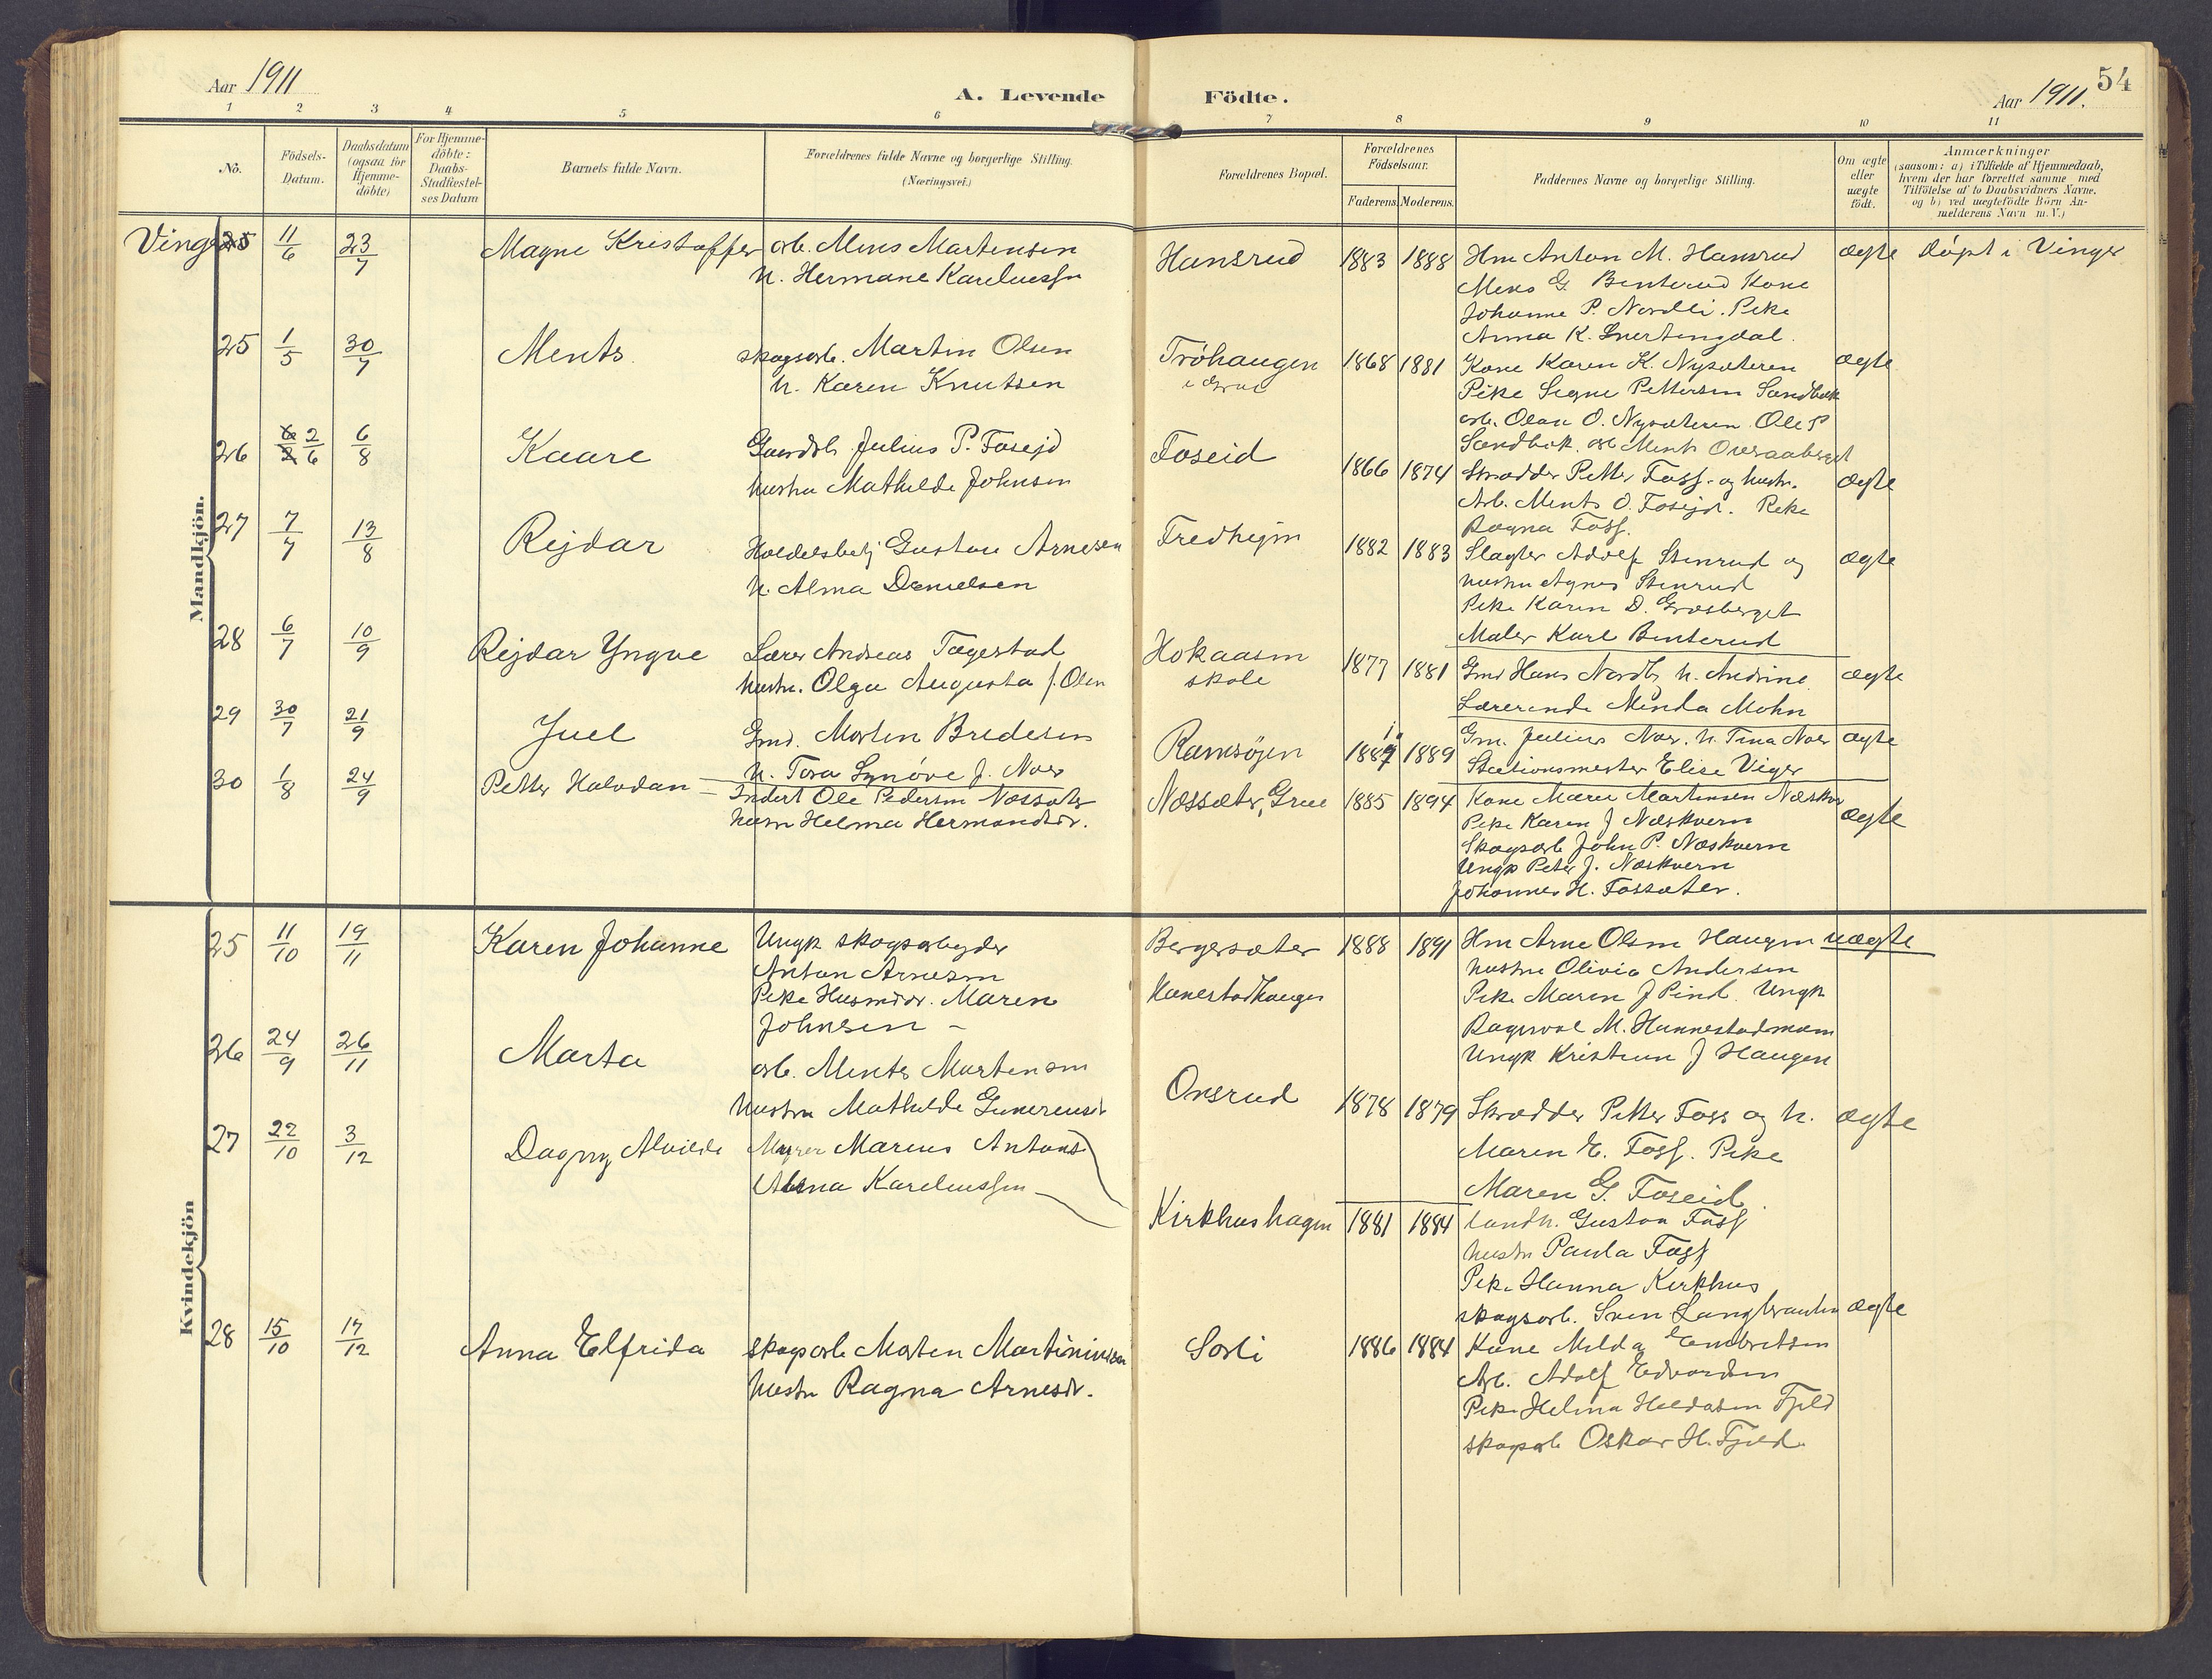 Aar 1911
A. Levende Födte.
Aar 1911.
54
1 2 3 4 5 6 7 8 9 10 11
No.
Födsels-Datum.
Daabsdatum (ogsaa for Hjemme-döbte)
For Hjemme-döbte: Daabs-Stadfæstel-ses Datum
Barnets fulde Navn.
Forældrenes fulde Navne og borgerlige Stilling. (Næringsvei.)
Forældrenes Bopæl.
Forældrenes Födselsaar.
Faderens. Moderens.
Faddernes Navne og borgerlige Stilling.
Om ægte eller uægte födt.
Anmærkninger
(saasom: a) i Tilfælde af Hjemmedaab,
hvem der har forrettet samme med
Tilföielse af to Daabsvidners Navne,
og b) ved uægtefödte Börn An-
melderens Navn m. V.)
Mandkjön.
Vinger 25 11/6 23/7 Magne Kristoffer arb. Mens Martensen Hansrud 1883 1888 Hm Anton M. Hansrud ægte døpt i Vinger
h. Hermane Karelius
Mens G. Benterud Kone
Johanne P. Nordli. Pike
Anna K. Snertingdal.
25 1/5 30/7 Ments. skogsarb. Martin Olsen Tröhaugen i Grue 1868 1881 Kone Karen K. Nysæteren ægte
h. Karen Knutsen
Pike Signe Pettersen Sandbæk
arb. Olav O. Nysæteren Ole P
Sandbæk. arb Ments Overaaberget
26 2/6 6/8 Kaare Gaardbr. Julius P. Foseid Foseid 1866 1874 Skrædder Petter Foss. og hustr. ægte
hustru Mathilde Johnsen
Arb. Ments O. Foseid. Pike
Ragna Foss.
27 7/7 13/8 Rejdar Handelsbetj Gustav Arnesen Fredhejm 1882 1883 Slagter Adolf Stenrud og ægte
h. Alma Danielsen
hustru Agnes Stenrud
Pike Karen D. Græsberget
Maler Karl Benterud
28 6/7 10/9 Rejdar Yngve Lærer Andreas Tagestad Hokaasen skole 1877 1881 Gmd Hans Nordby h. Andrine ægte
hustru. Olga Augusta f. Olsen
Lærerinde Minda Mohn
29 30/7 21/9 Juel Gmd. Morten Bredesen Ramsøjen 1889 Gm. Julius Noer. h. Tina Noer ægte
h. Tora Synöve J. Noer
Stationsmester Elise Viger
30 1/8 24/9 Petter Halvdan Inderst Ole Pedersen Næssæter Næssæter, Grue 1885 1894 Kone Maren Martinsen Næskvern ægte
hustru Helma Hermandsdr.
Pike Karen J Næskvern
Skogsarb John P. Næskvern
Ungk Peter J. Næskvern
Johannes H. Fossæter.
Kvindekjön
25 11/10 19/11 Karen Johanne Ungk skogsarbejder Bergersæter 1888 1891 Hm Arne Olsen Haugen uægte
Anton Arnesen
Pike Husmdr. Maren
Johnsen –
hustru Olivia Andersen
Pike Maren J Pind. Ungk
Ragnval M. Hannestadmoen
Ungk Kristian J Haugen
26 24/9 26/11 Marta arb. Ments Martensen Onsrud 1878 1879 Skrædder Petter Foss og h. ægte
hustru Mathilde Gunerius
Maren E. Foss. Pike
Maren G. Foseid.
27 22/10 3/12 Dagny Alvilde Myrer Marius Antons Kirkhushagen 1881 1884 Landh. Gustav Foss ægte
Alma Kareliussen
hustr Paula Foss
Pike Hanna Kirkhus
skogsarb. Sven Langbraaten
28 15/10 17/12 Anna Elfrida Skogsarb Morten Martinius Sorli 1886 1884 Kone Milda Embretsen
hustr Ragna Arnesdr.
Arb. Adolf Edvardsen
Pike Helma Fjeld
skogsarb Oskar H. Fjeld